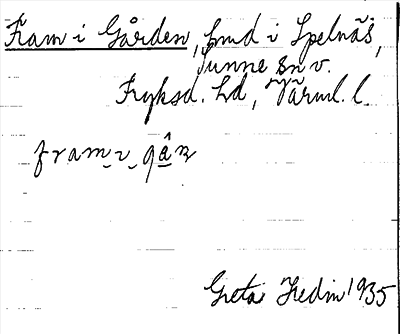 Fram i Gården, hmd i Spelnäs,
Sunne sn v.
Fryksd. hd, Värml. l.
fram i gân
Greta Hedin 1935